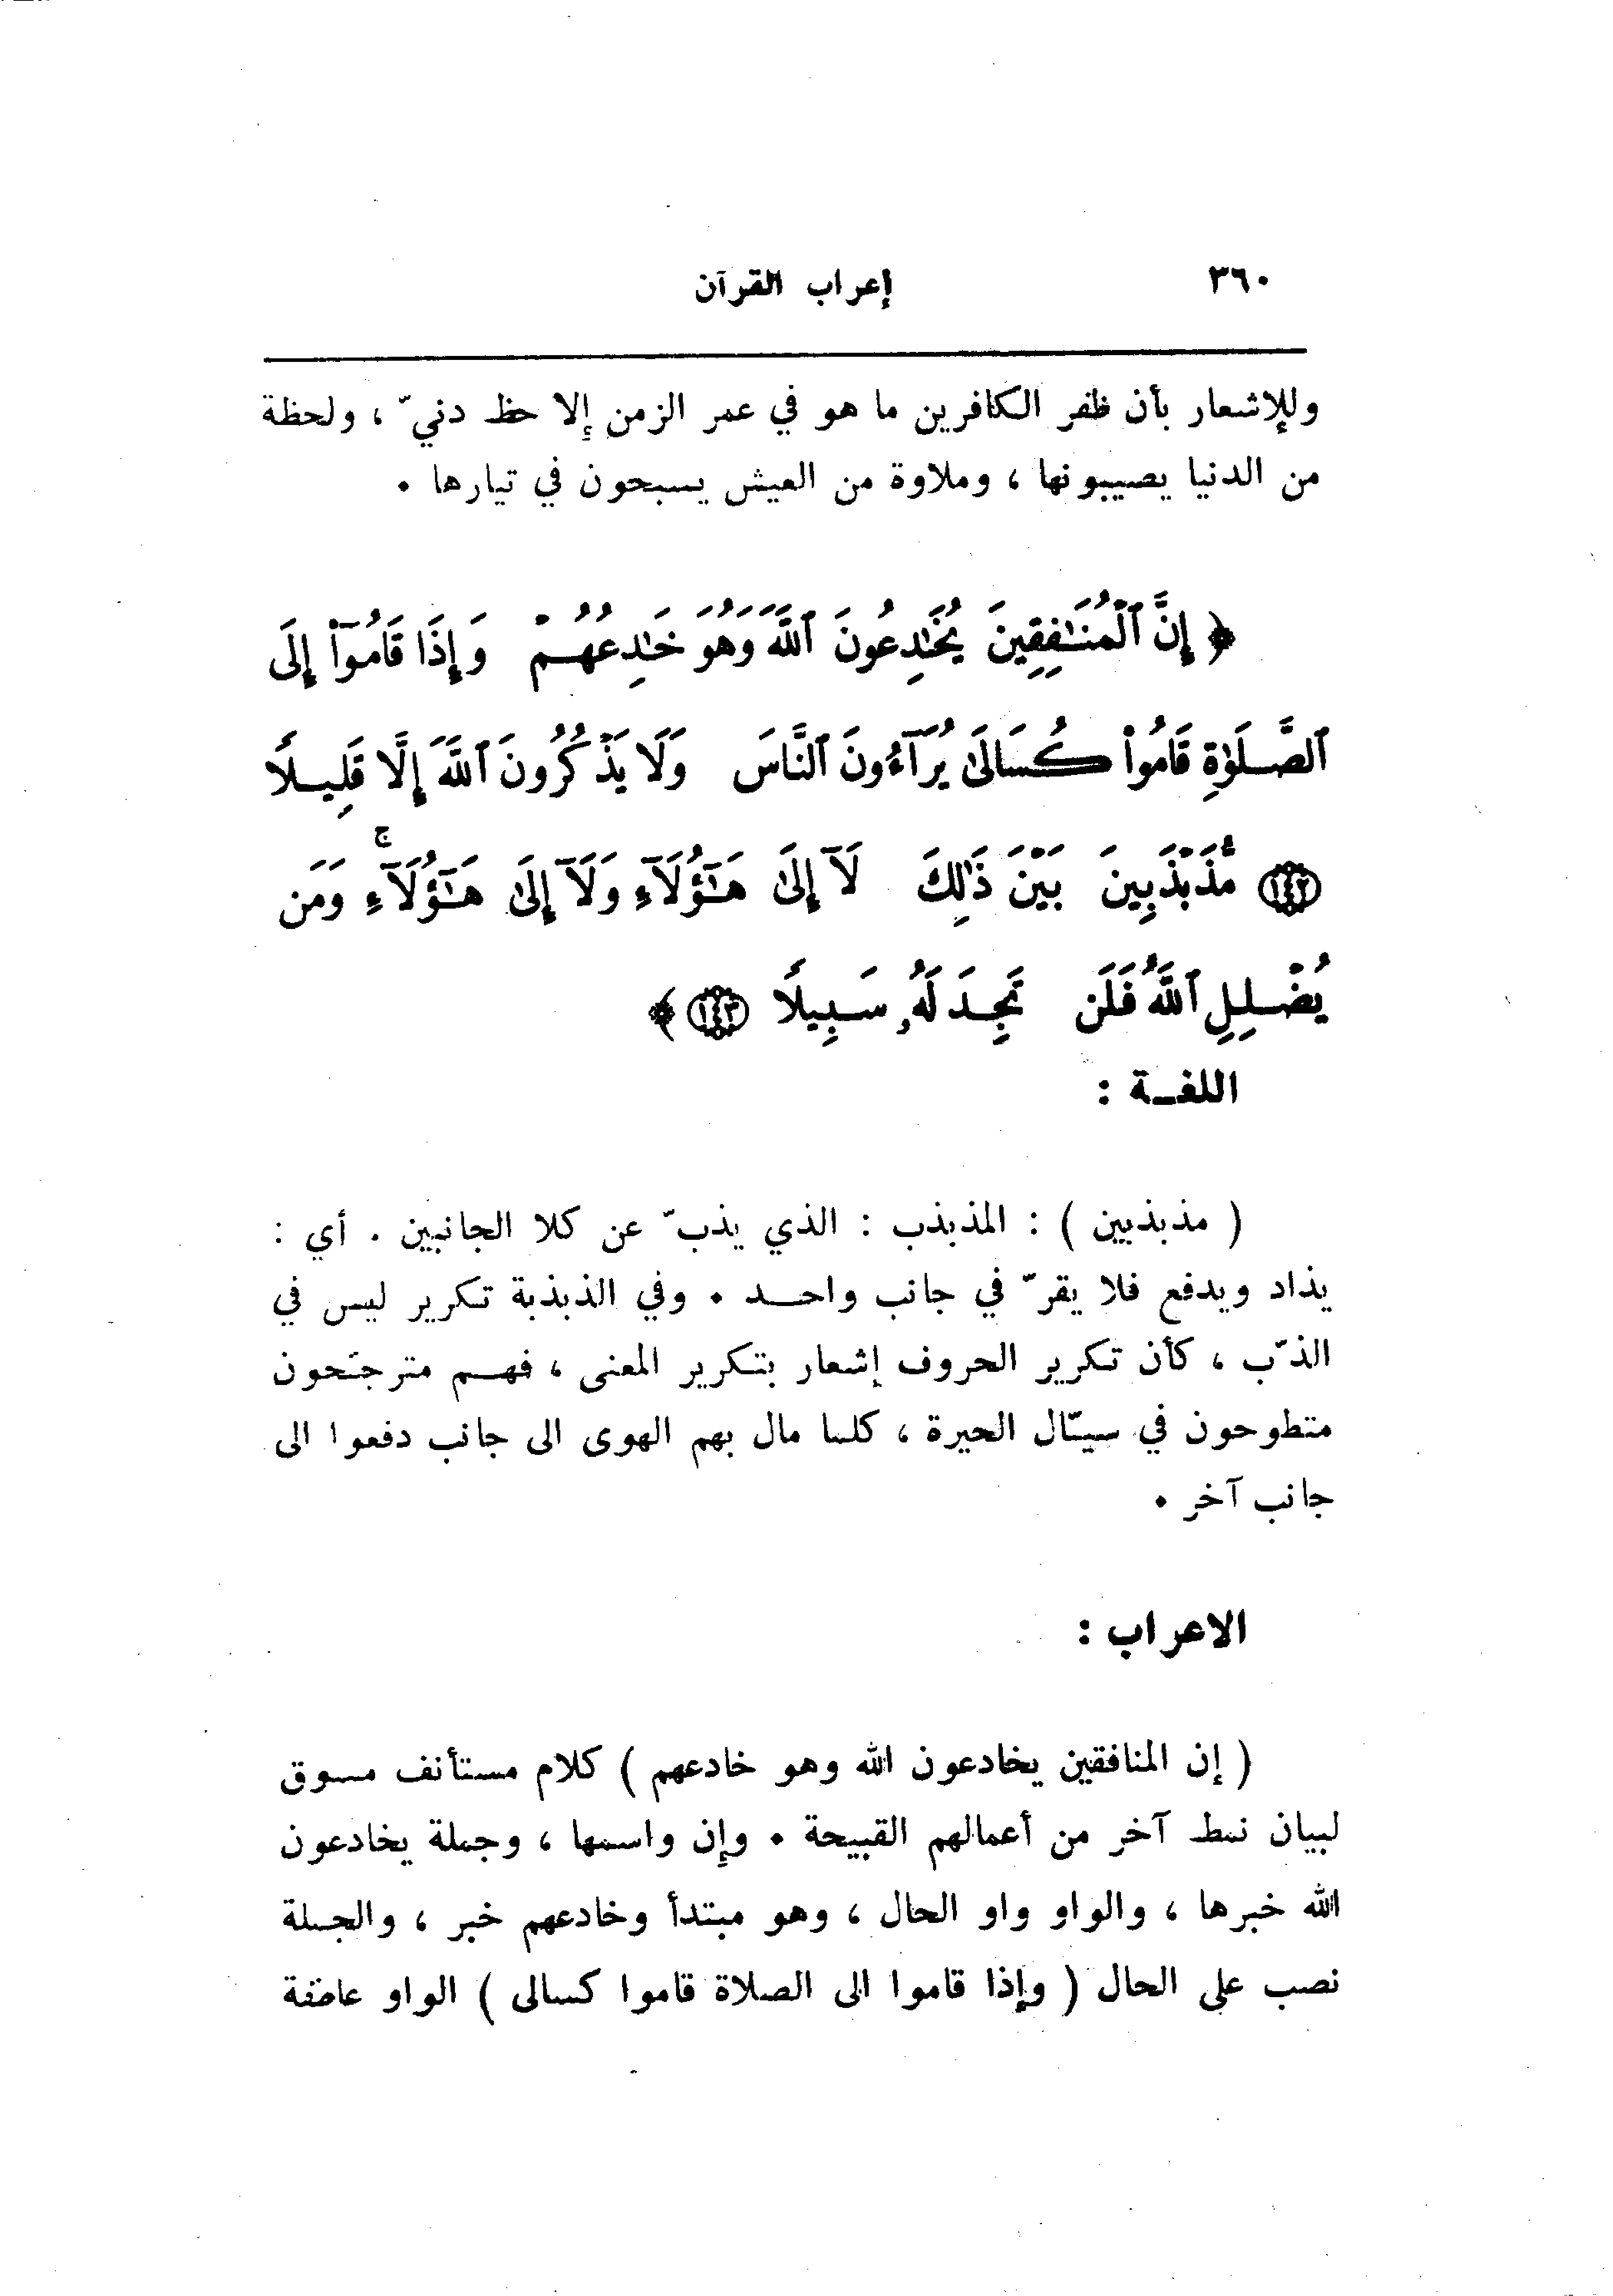 ٣٦٠ إعراب القرآن
وللإشعار بأن ظفر الكافرين ما هو في عمر الزمن إلا حظ دنيّ ، ولحظة
من الدنيا يصيبونها ، وملاوة من العيش يسبحون في تيارها .
﴿ إِنَّ ٱلْمُنَـٰفِقِينَ يُخَـٰدِعُونَ ٱللَّهَ وَهُوَ خَـٰدِعُهُمْ وَإِذَا قَامُوٓا۟ إِلَى
ٱلصَّلَوٰةِ قَامُوا۟ كُسَالَىٰ يُرَآءُونَ ٱلنَّاسَ وَلَا يَذْكُرُونَ ٱللَّهَ إِلَّا قَلِيلًا
١٤٢ مُّذَبْذَبِينَ بَيْنَ ذَٰلِكَ لَآ إِلَىٰ هَـٰٓؤُلَآءِ وَلَآ إِلَىٰ هَـٰٓؤُلَآءِ ۚ وَمَن
يُضْلِلِ ٱللَّهُ فَلَن تَجِدَ لَهُۥ سَبِيلًا ١٤٣ ﴾
اللغـة :
( مذبذبين ) : المذبذب : الذي يذبّ عن كلا الجانبين . أي :
يذاد ويدفع فلا يقرّ في جانب واحــد . وفي الذبذبة تكرير ليس في
الذّب ، كأن تكرير الحروف إشعار بتكرير المعنى ، فهــم مترجّحون
متطوحون في سيّال الحيرة ، كلما مال بهم الهوى الى جانب دفعوا الى
جانب آخر .
الاعراب :
( إن المنافقين يخادعون الله وهو خادعهم ) كلام مستأنف مسوق
لبيان نمط آخر من أعمالهم القبيحة . وإن واسمها ، وجملة يخادعون
الله خبرها ، والواو واو الحال ، وهو مبتدأ وخادعهم خبر ، والجملة
نصب على الحال ( وإذا قاموا الى الصلاة قاموا كسالى ) الواو عاطفة